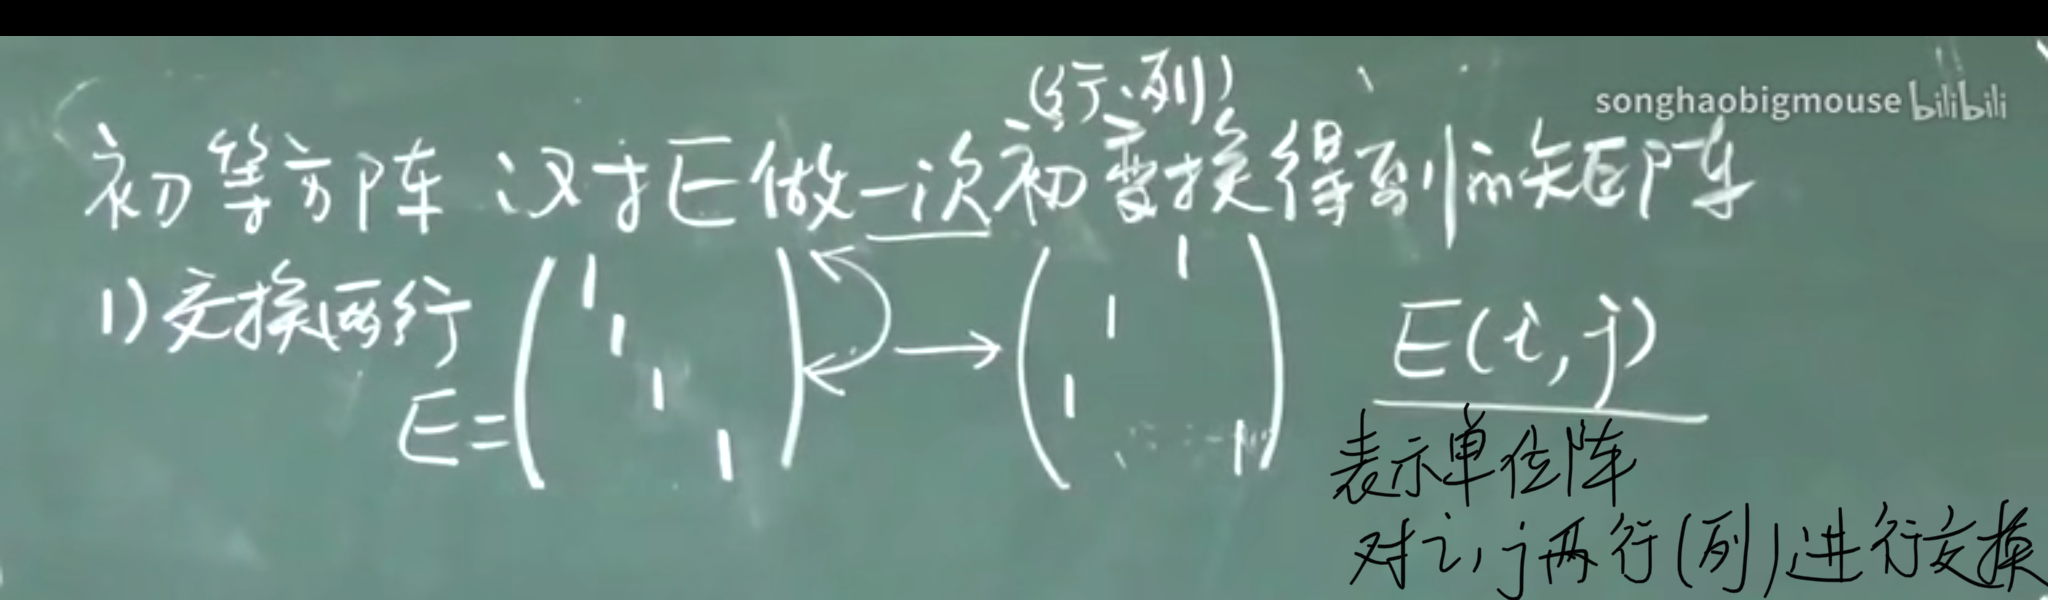 (行、列)
songhaobigmouse bilibili
初等方阵 汉对E做一次初变换得到的矩阵
1)交换两行
E=(1 1 1 1) → (1 1 1 1) E(i,j)
表示单位阵
对i,j两行(列)进行交换